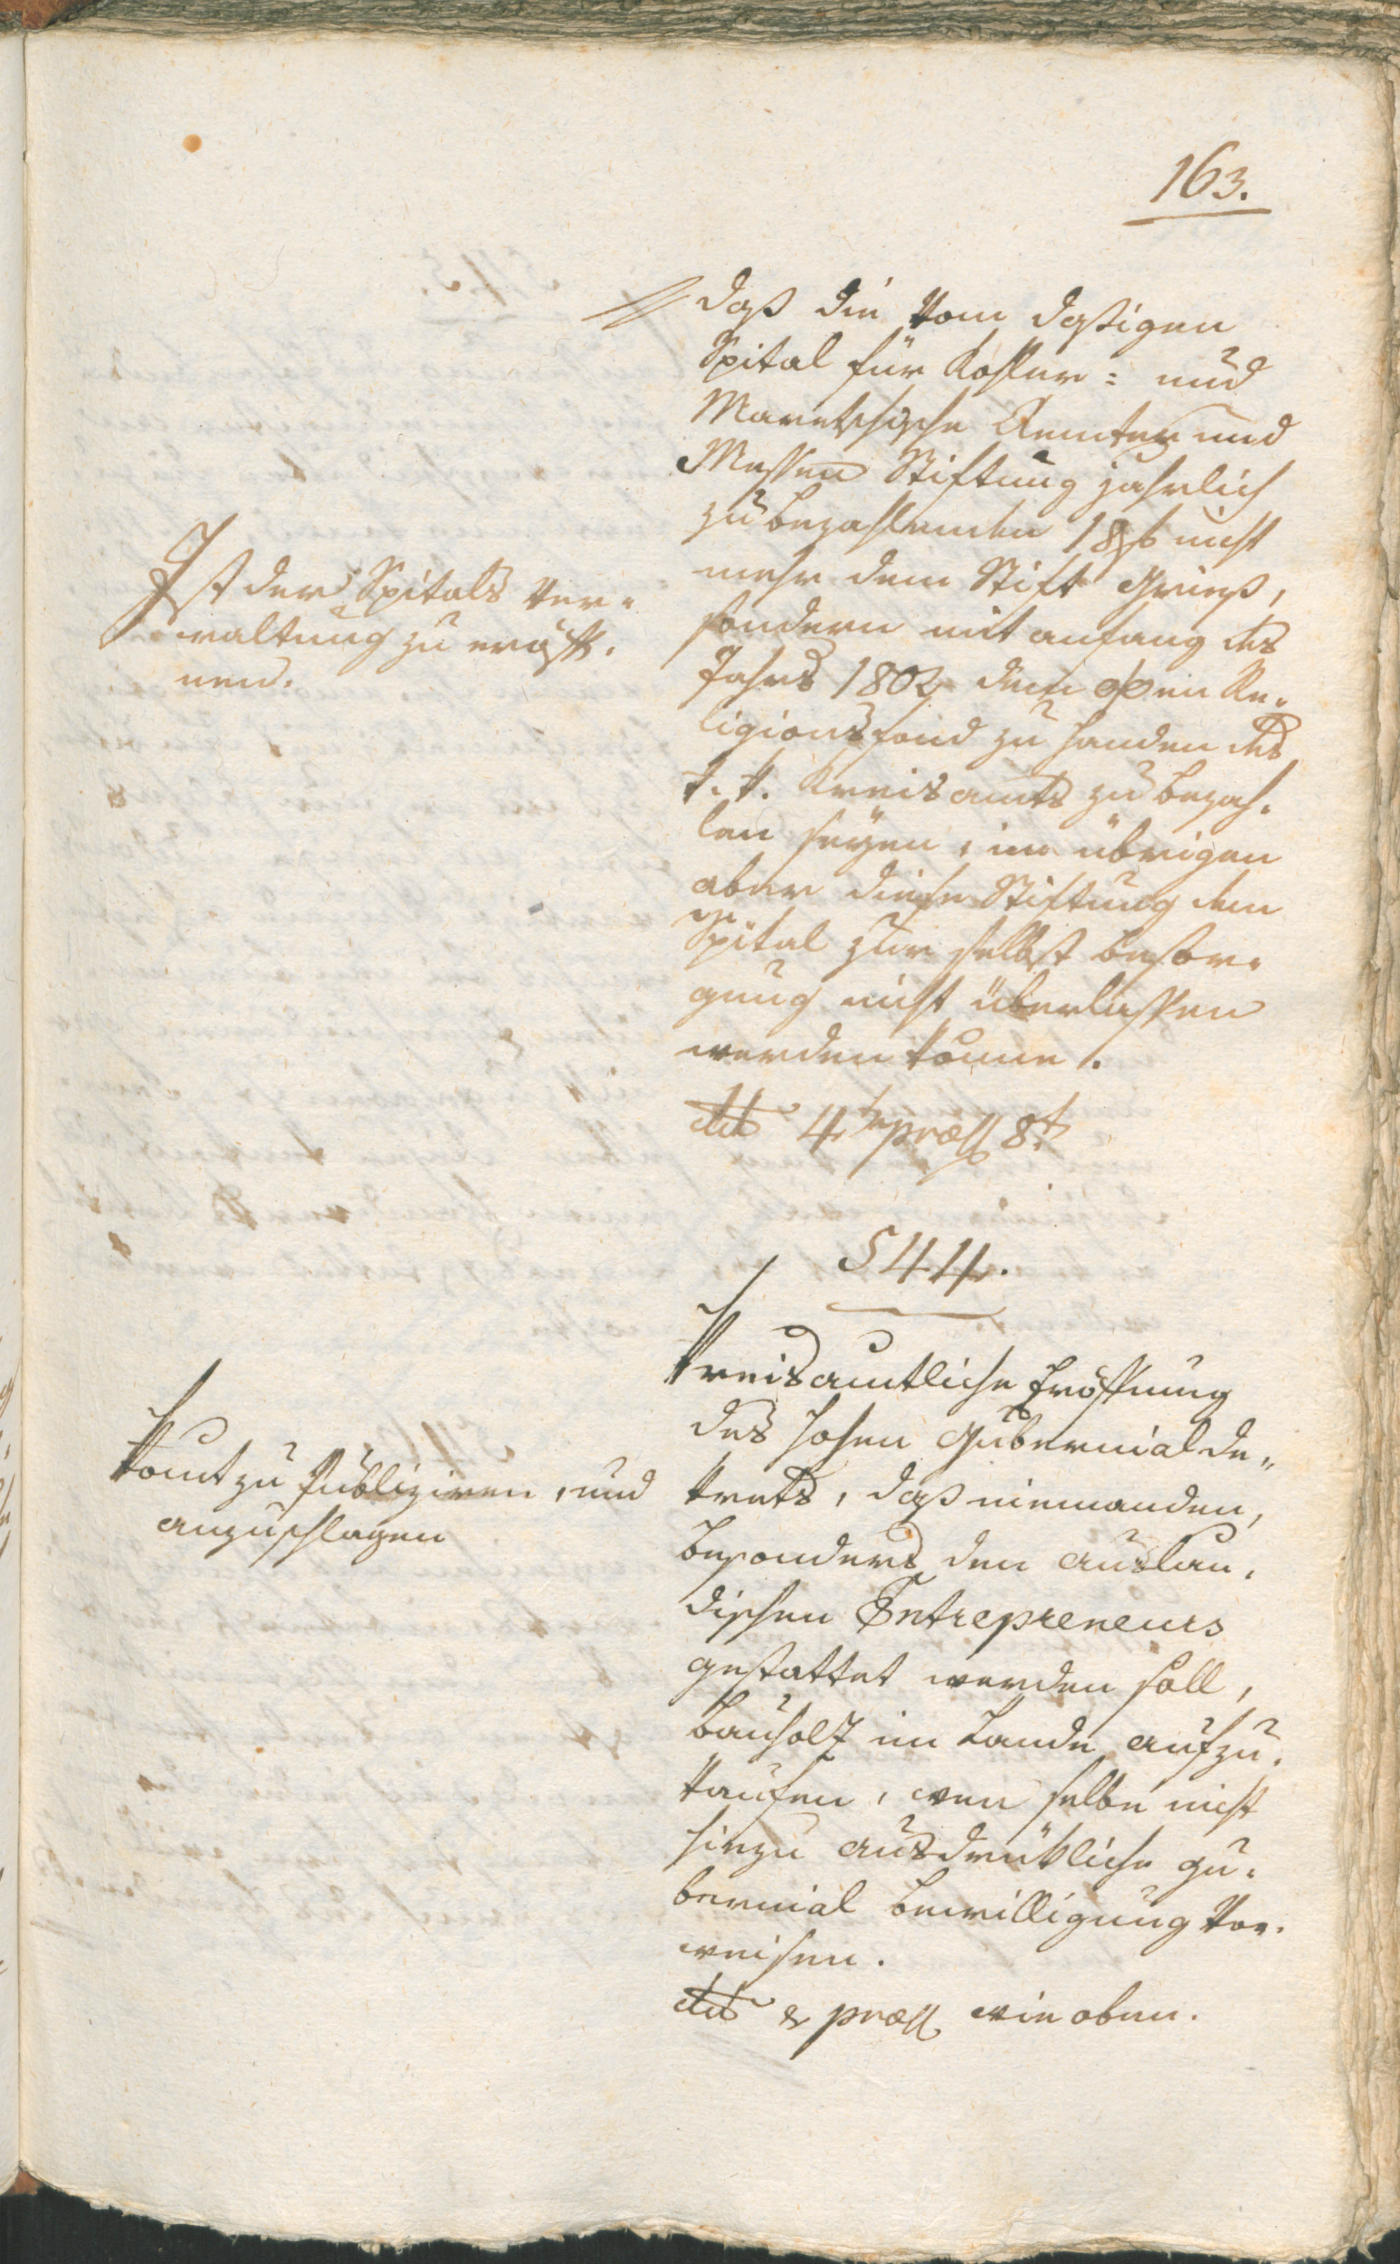 163.
daß die vom dasigen
Spital für Kohler= und
Maretschische Aemter und
Messen Stiftung jahrlich
zubezahlenden 18 f nicht
mehr dem Stift Gries,
sondern mit anfang des
Jahrs 1802 dem Re-
ligionsfond zu Handen des
k. k. Kreisamts zu bezah-
len seÿen, im übrigen
aber diese Stiftung dem
Spital zur selbst besor-
gung nicht überlassen
werden könne.
dto 4ten præs 8t
Ist der Spitals Ver-
waltung zu eröff-
nen.
544.
Kreisamtliche Eröffnung
des hohen Gubernialde-
krets, daß niemanden,
besonders den auslän-
dischen Entrepreneurs
gestattet werden soll,
Bauholz im Lande aufzu-
kaufen, wen selbe nicht
hiezu ausdrükliche gu-
bernial bewilligung vor-
weisen.
dto & præs wie oben.
Komt zu Publiziren, und
anzuschlagen